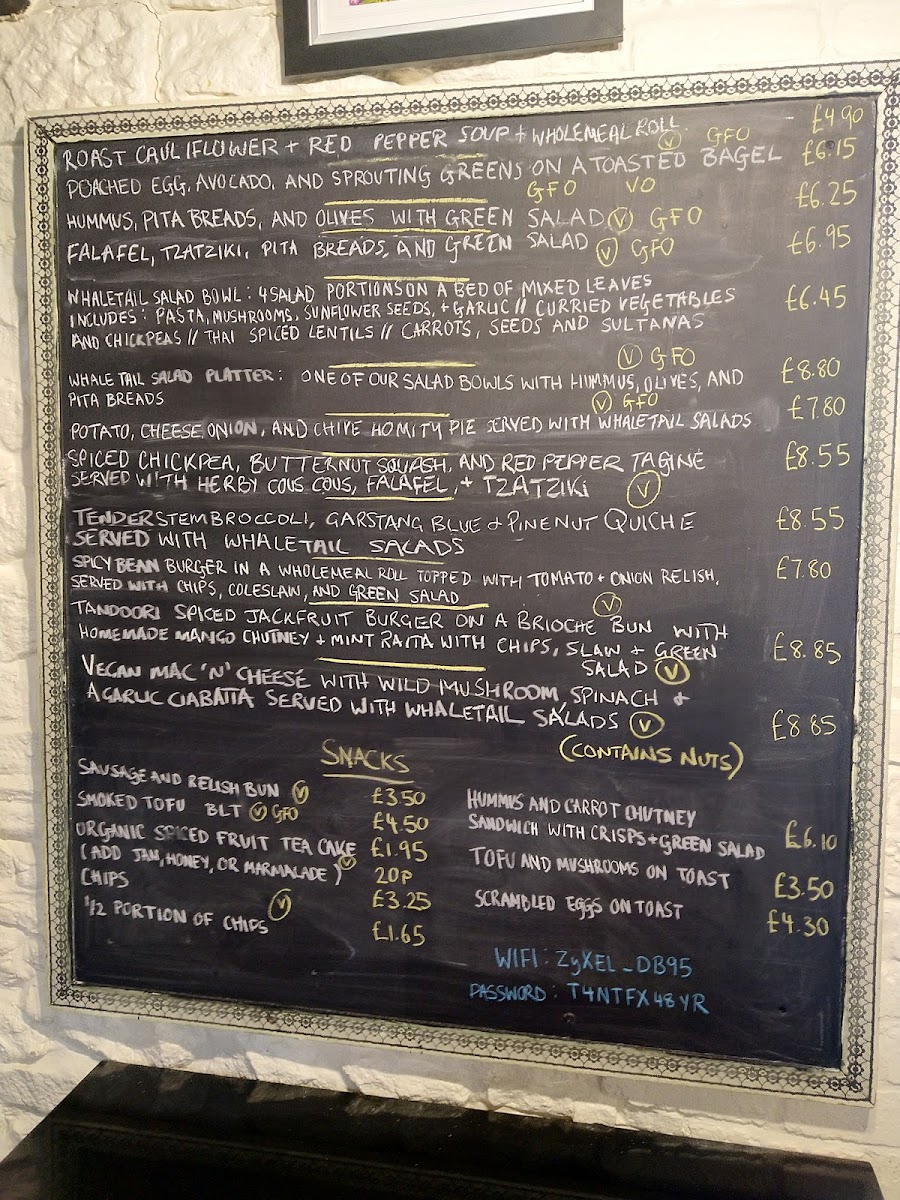 ROAST CAULIFLOWER + RED PEPPER SOUP + WHOLEMEAL ROLL V GFO £4.90
POACHED EGG, AVOCADO, AND SPROUTING GREENS ON A TOASTED BAGEL £6.15
GFO VO
HUMMUS, PITA BREADS, AND OLIVES WITH GREEN SALAD V GFO £6.25
FALAFEL, TZATZIKI, PITA BREADS, AND GREEN SALAD V GFO £6.95
WHALETAIL SALAD BOWL: 4 SALAD PORTIONS ON A BED OF MIXED LEAVES
INCLUDES: PASTA, MUSHROOMS, SUNFLOWER SEEDS, + GARLIC // CURRIED VEGETABLES £6.45
AND CHICKPEAS // THAI SPICED LENTILS // CARROTS, SEEDS AND SULTANAS
V GFO
WHALETAIL SALAD PLATTER: ONE OF OUR SALAD BOWLS WITH HUMMUS, OLIVES, AND £8.80
PITA BREADS V GFO
POTATO, CHEESE, ONION, AND CHIVE HOMITY PIE SERVED WITH WHALETAIL SALADS £7.80
SPICED CHICKPEA, BUTTERNUT SQUASH, AND RED PEPPER TAGINE £8.55
SERVED WITH HERBY COUS COUS, FALAFEL, + TZATZIKI V
TENDERSTEM BROCCOLI, GARSTANG BLUE + PINENUT QUICHE £8.55
SERVED WITH WHALETAIL SALADS
SPICY BEAN BURGER IN A WHOLEMEAL ROLL TOPPED WITH TOMATO + ONION RELISH, £7.80
SERVED WITH CHIPS, COLESLAW, AND GREEN SALAD V
TANDOORI SPICED JACKFRUIT BURGER ON A BRIOCHE BUN WITH
HOMEMADE MANGO CHUTNEY + MINT RAITA WITH CHIPS, SLAW + GREEN £8.85
SALAD V
VEGAN MAC 'N' CHEESE WITH WILD MUSHROOM, SPINACH +
A GARLIC CIABATTA SERVED WITH WHALETAIL SALADS V £8.85
(CONTAINS NUTS)
SNACKS
SAUSAGE AND RELISH BUN V £3.50
SMOKED TOFU BLT V GFO £4.50
ORGANIC SPICED FRUIT TEA CAKE £1.95
(ADD JAM, HONEY, OR MARMALADE) V 20P
CHIPS £3.25
1/2 PORTION OF CHIPS V £1.65
HUMMUS AND CARROT CHUTNEY
SANDWICH WITH CRISPS + GREEN SALAD £6.10
TOFU AND MUSHROOMS ON TOAST £3.50
SCRAMBLED EGGS ON TOAST £4.30
WIFI: ZyXEL_DB95
PASSWORD: T4NTFX48YR